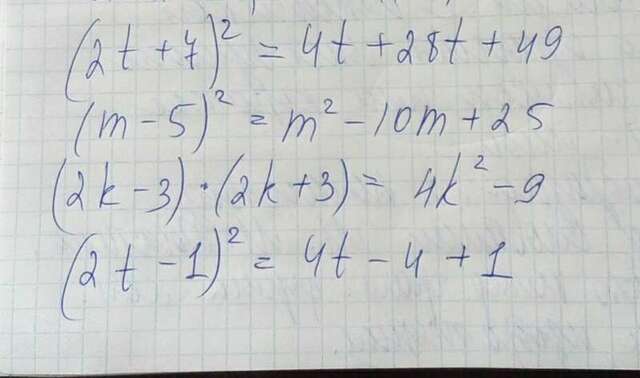 (2t + 7)² = 4t + 28t + 49
(m - 5)² = m² - 10m + 25
(2k - 3) · (2k + 3) = 4k² - 9
(2t - 1)² = 4t - 4 + 1